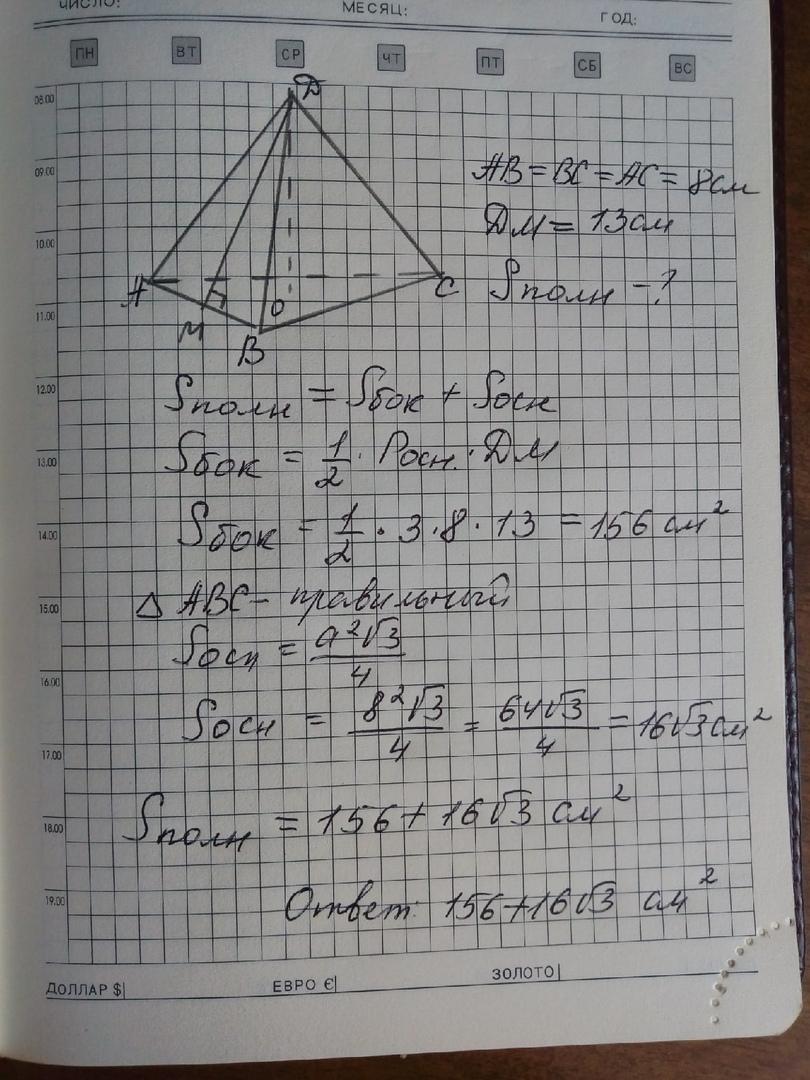 ЧИСЛО: МЕСЯЦ: ГОД:
ПН ВТ СР ЧТ ПТ СБ ВС
08.00
09.00
10.00
11.00
12.00
13.00
14.00
15.00
16.00
17.00
18.00
19.00
D
A
M
B
O
C
AB = BC = AC = 8 см
DM = 13 см
Sполн - ?
Sполн = Sбок + Sосн
Sбок = 1/2 · Pосн · DM
Sбок = 1/2 · 3 · 8 · 13 = 156 см²
Δ ABC - правильный
Sосн = a²√3/4
Sосн = 8²√3/4 = 64√3/4 = 16√3 см²
Sполн = 156 + 16√3 см²
Ответ: 156 + 16√3 см²
ДОЛЛАР $| ЕВРО €| ЗОЛОТО|